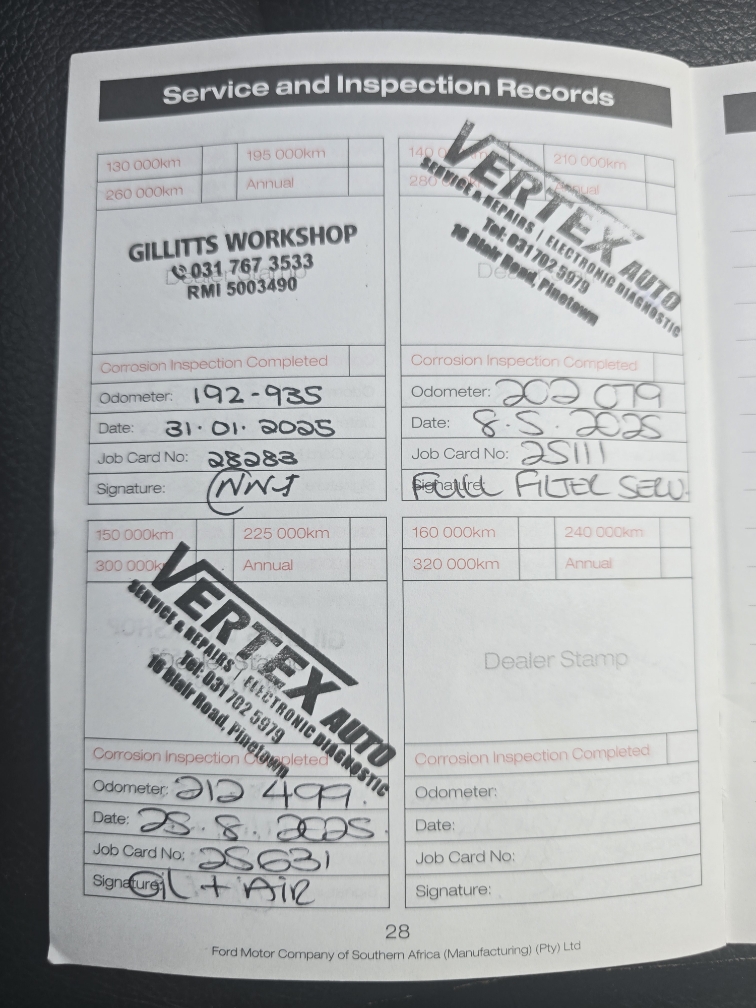 Service and Inspection Records
130 000km 195 000km
260 000km Annual
GILLITTS WORKSHOP
031 767 3533
RMI 5003490
Dealer Stamp
Corrosion Inspection Completed
Odometer: 192-935
Date: 31.01.2025
Job Card No: 28283
Signature:
140 0 210 000km
280 Annual
VERTEX AUTO
SERVICE & REPAIRS | ELECTRONIC DIAGNOSTIC
Tel: 031 702 5979
16 Blair Road, Pinetown
Corrosion Inspection Completed
Odometer: 202 079
Date: 8.5.2025
Job Card No: 25111
Signature: FULL FILTER SERV.
150 000km 225 000km
300 000km Annual
VERTEX AUTO
SERVICE & REPAIRS | ELECTRONIC DIAGNOSTIC
Tel: 031 702 5979
16 Blair Road, Pinetown
Corrosion Inspection Completed
Odometer: 212 499.
Date: 25.8.2025.
Job Card No: 25631
Signature: OIL + AIR
160 000km 240 000km
320 000km Annual
Dealer Stamp
Corrosion Inspection Completed
Odometer:
Date:
Job Card No:
Signature:
28
Ford Motor Company of Southern Africa (Manufacturing) (Pty) Ltd